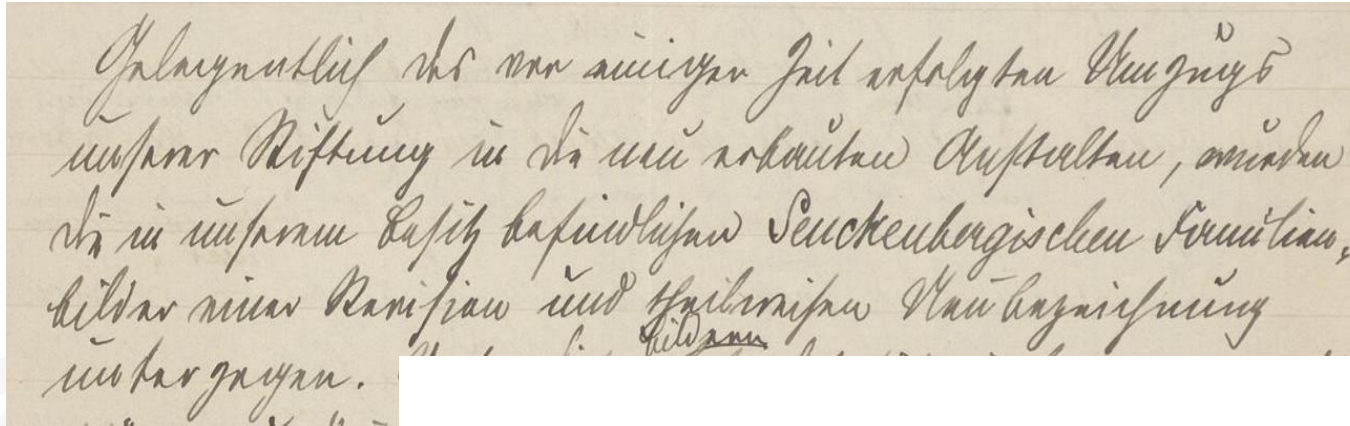 Gelegentlich des vor einiger Zeit erfolgten Umzugs
unserer Stiftung in die neu erbauten Anstalten, wurden
die in unserem Besitz befindlichen Senckenbergischen Familien-
bilder einer Revision und theilweisen Neubezeichnung
bildern
unterzogen.